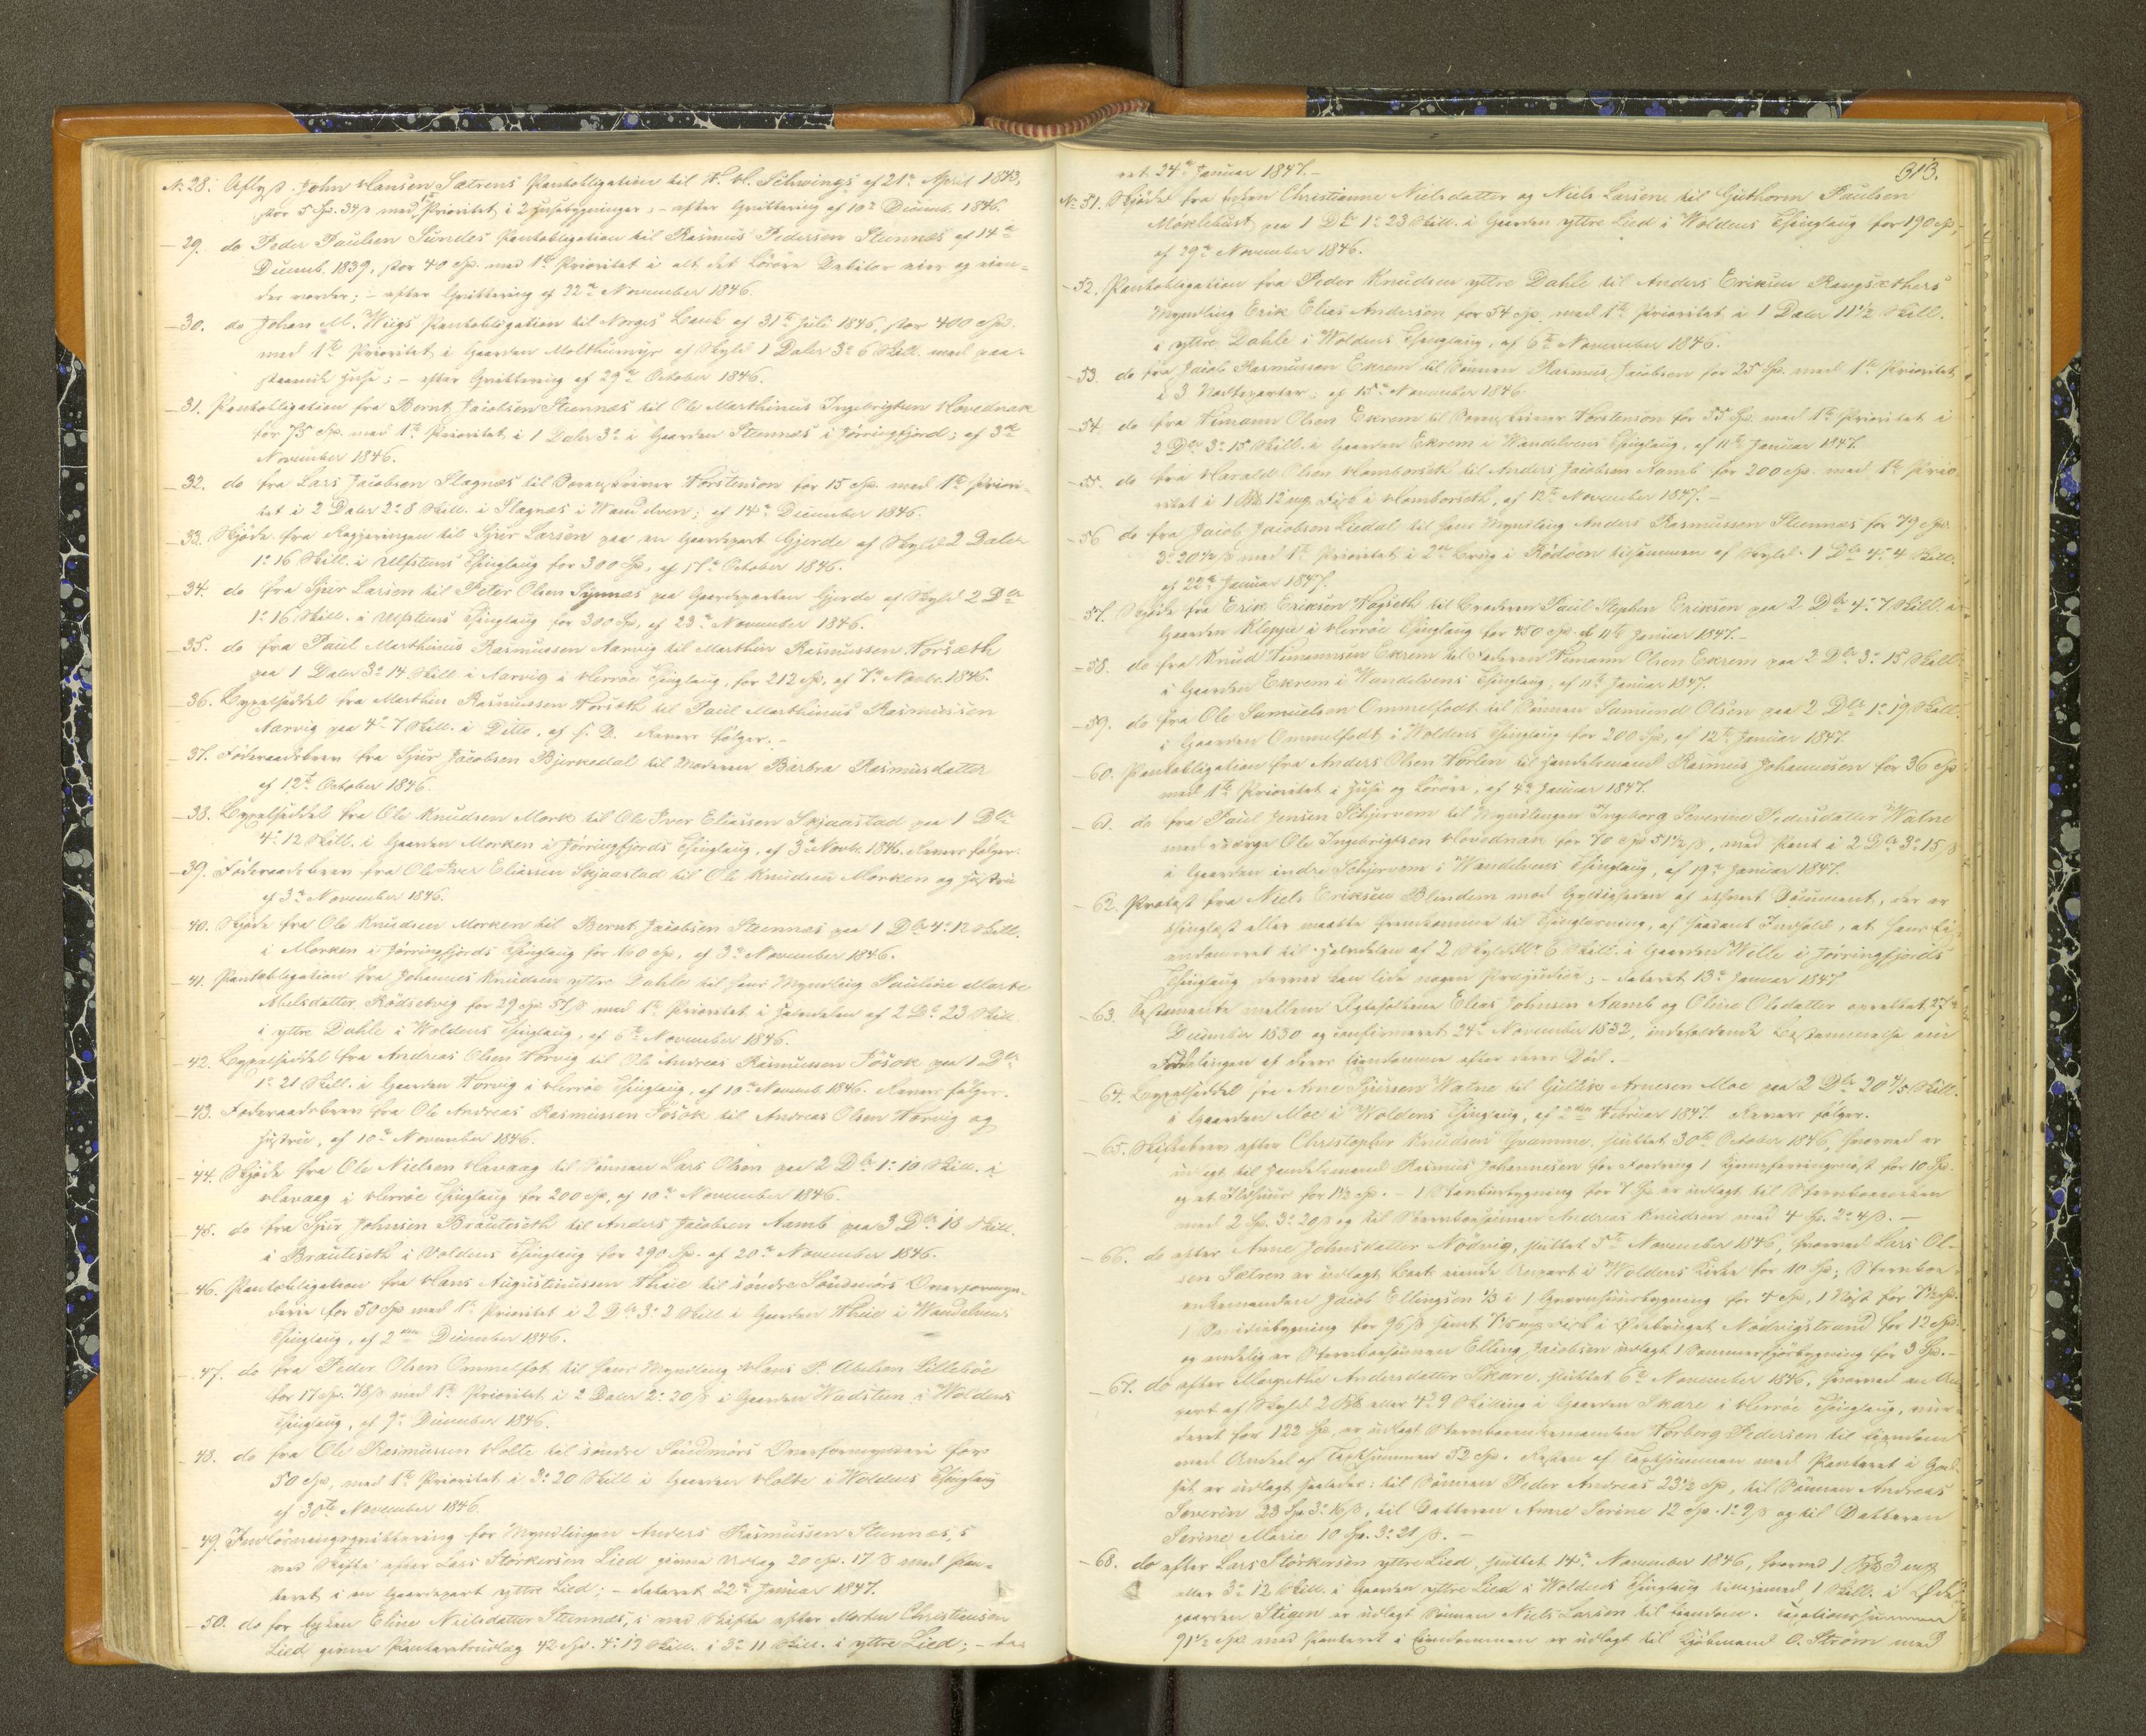 No 28. Aflyst John Hansen Sætrens Pantobligation til H. H. Schwings af 21de April 1843,
stor 5 Sp. 34 ß med Prioritet i 2 Huusebygninger; – efter Qvittering af 10de Decemb. 1846.
– 29. do Peder Paulsen Sundes Pantobligation til Rasmus Pedersen Steennæs af 14de
Decemb. 1839, stor 40 Sp. med 1ste Prioritet i alt det Løsøre Debitor eier og eien-
des vorder; – efter Qvittering af 22de November 1846.
– 30. do Johan M. Wiigs Pantobligation til Norges Bank af 31te Juli 1846, stor 400 Spd.
med 1ste Prioritet i Gaarden Molthumyr af Skyld 1 Daler 3 6 Skill. med paa-
staaende Huse; – efter Qvittering af 29de October 1846.
– 31. Pantobligation fra Bernt Jacobsen Steennæs til Ole Marthinus Ingebrigtsen Hovednak
for 75 Sp. med 1ste Prioritet i 1 Daler 3 i Gaarden Steennæs i Jørringfjord; af 3de
November 1846.
– 32. do fra Lars Jacobsen Slagnæs til Sorenskriver Thorstenson for 15 Sp. med 1ste Priori-
tet i 2 Daler 2 8 Skill. i Slagnæs i Wandelven; af 14de December 1846.
– 33. Skjøde fra Regjeringen til Sjur Larsen paa en Gaardepart Gjerde af Skyld 2 Daler
1 16 Skill. i Ulfstens Thinglaug for 300 Sp, af 17de October 1846.
– 34. do fra Sjur Larsen til Peter Olsen Synnæs paa Gaardeparten Gjerde af Skyld 2 Dlr
1 16 Skill. i Ulfstens Thinglaug for 300 Sp, af 23de November 1846.
– 35. do fra Paul Marthinus Rasmussen Aarvig til Marthin Rasmussen Horsæth
paa 1 Daler 3 14 Skill. i Aarvig i Herröe Thinglaug, for 212 Sp, af 7de Novbr. 1846.
– 36. Bygselseddel fra Marthin Rasmussen Horsæth til Paul Marthinus Rasmussen
Aarvig paa 4 7 Skill. i Ditto, af s. D. Revers følger. –
– 37. Föderaadsbrev fra Sjur Jacobsen Bjerkedal til Moderen Barbra Rasmusdatter
af 12te October 1846.
– 38. Bygselseddel fra Ole Knudsen Mork til Ole Iver Eliassen Skjaastad paa 1 Dlr
4 12 Skill. i Gaarden Morken i Jørringfjords Thinglaug, af 3de Novbr. 1846. Revers følger.
– 39. Föderaadsbrev fra Ole Iver Eliassen Skjaastad til Ole Knudsen Morken og Hustru
af 3de November 1846.
– 40. Skjøde fra Ole Knudsen Morken til Bernt Jacobsen Steennæs paa 1 Dlr 4 12 Skill.
i Morken i Jørringfjords Thinglaug for 160 Sp, af 3de November 1846.
– 41. Pantobligation fra Johannes Knudsen yttre Dahle til hans Myndling Pauline Marte
Abelsdatter Rödsetvig for 29 Sp. 57 ß med 1ste Prioritet i Halvdelen af 2 Dlr 23 Skill.
i yttre Dahle i Woldens Thinglaug, af 6te November 1846.
– 42. Bygselseddel fra Andreas Olsen Norvig til Ole Andreas Rasmussen Fösok paa 1 Dlr
1 21 Skill. i Gaarden Norvig i Herröe Thinglaug, af 10de Novemb. 1846. Revers følger.
– 43. Föderaadsbrev fra Ole Andreas Rasmussen Fösok til Andreas Olsen Norvig og
Hustru, af 10de November 1846.
– 44. Skjøde fra Ole Nielsen Havaag til Sönnen Lars Olsen paa 2 Dlr 1 10 Skill. i
Havaag i Herröe Thinglaug for 200 Sp, af 10de November 1846.
– 45. do fra Sjur Johnsen Brautesæth til Anders Jacobsen Aamb paa 3 Dlr 18 Skill.
i Brauteseth i Voldens Thinglaug for 290 Sp. af 20de November 1846.
– 46. Pantobligation fra Hans Augustinussen Thue til söndre Söndmørs Overformyn-
derie for 50 Sp med 1ste Prioritet i 2 Dlr 3 2 Skill. i Gaarden Thue i Wandelvens
Thinglaug, af 2den December 1846.
– 47. do fra Peder Olsen Ommelfot til hans Myndling Hans P. Abelsen Lilleböe
for 17 Sp. 78 ß med 1ste Prioritet i 2 Daler 2 20 ß i Gaarden Wadsteen i Woldens
Thinglaug, af 9de December 1846.
– 48. do fra Ole Rasmussen Holte til söndre Söndmörs Overformynderi for
50 Sp, med 1ste Prioritet i 3 20 Skill. i Gaarden Holte i Woldens Thinglaug
af 30te November 1846.
– 49. Indlösningsqvittering for Myndlingen Anders Rasmussen Steennæs, i
ved Skifte efter Lars Störkersen Lied givne Udlæg 20 Sp. 17 ß med Pan-
teret i en Gaardepart yttre Lied; – dateret 22de Januar 1847.
– 50. do for Enken Eline Nielsdatter Steennæs, i ved Skifte efter Morten Christensen
Lied givne Panteretsudlæg 42 Sp. 4 19 Skill. i 3 11 Skill. i yttre Lied; – da-
313.
teret 24de Januar 1847. –
No 51. Skjøde fra Enken Christianne Nielsdatter og Niels Larsen til Guthorm Paulsen
Mørklebust paa 1 Dlr 1 23 Skill. i Gaarden yttre Lied i Woldens Thinglaug for 190 Sp,
af 29de November 1846.
– 52. Pantobligation fra Peder Knudsen yttre Dahle til Anders Eriksen Rangsæthers
Myndling Erik Elias Andersen for 54 Sp. med 1ste Prioritet i 1 Daler 11 1/2 Skill.
i yttre Dahle i Woldens Thinglaug, af 6te November 1846.
– 53. do fra Jacob Rasmussen Ekrem til Sönnen Rasmus Jacobsen for 25 Sp. med 1ste Prioritet
i 3 Nodteparter; af 15de November 1846.
– 54. do fra Nimann Olsen Ekrem til Sorenskriver Thorstenson for 35 Sp. med 1ste Prioritet i
2 Dlr 3 15 Skill. i Gaarden Ekrem i Wandelvens Thinglaug, af 11te Januar 1847.
– 55. do fra Harald Olsen Homborseth til Anders Jacobsen Aamb for 200 Sp. med 1ste Prio-
ritet i 1 12 mp Fisk i Homborseth, af 12te November 1847. –
– 56. do fra Jacob Jacobsen Liedal til hans Myndling Anders Rasmussen Steennæs for 79 Sp.
3 20 1/2 ß med 1ste Prioritet i 2de Brug i Rödöen tilsammen af Skyld 1 Dlr 4 4 Skill.
af 22de Januar 1847.
– 57. Skjøde fra Erik Eriksen Wogseth til Broderen Paul Stephen Eriksen paa 2 Dlr 4 7 Skill. i
Gaarden Kleppe i Herröe Thinglaug for 450 Sp. af 11te Januar 1847. –
– 58. do fra Knud Nimannsen Ekrem til Faderen Nimann Olsen Ekrem paa 2 Dlr 3 15 Skill.
i Gaarden Ekrem i Wandelvens Thinglaug, af 11te Januar 1847.
– 59. do fra Ole Samuelsen Ommelfodt til Sönnen Samund Olsen paa 2 Dlr 1 19 Skill.
i Gaarden Ommelfodt i Woldens Thinglaug for 200 Sp, af 12te Januar 1847.
– 60. Pantobligation fra Anders Olsen Horlen til Handelsmand Rasmus Johannesen for 36 Sp
med 1ste Prioritet i Huse og Lösöre, af 4de Januar 1847.
– 61. do fra Paul Jensen Schjervem til Myndlingen Ingeborg Severine Pedersdatter Watne
med Værge Ole Ingebrigtsen Hovednak for 70 Sp 51 1/2 ß, med Pant i 2 Dlr 3 15 ß
i Gaarden indre Schjervem i Wandelvens Thinglaug, af 19de Januar 1847.
– 62. Protest fra Niels Eriksen Blindem mod Gyldigheden af ethvert Document, der er
thinglæst eller maatte fremkomme til Thinglæsning, af saadant Indhold, at hans Ei-
endomsret til Halvdelen af 2 Skyldmk 6 Skill. i Gaarden Welle i Jørringfjords
Thinglaug derved kan lide nogen Præjudice; – dateret 13de Januar 1847.
– 63. Testamente mellem Ægtefolkene Elias Johnsen Aamb og Oline Olsdatter oprettet 27de
December 1830 og confirmeret 24de November 1832, indeholdende Bestemmelse om
Fordelingen af deres Eiendomme efter deres Död. –
– 64. Bygselseddel fra Arne Sjursen Watne til Gullik Arnesen Moe paa 2 Dlr 20 4/5 Skill.
i Gaarden Moe i Woldens Thinglaug, af 2den Februar 1847. Revers følger.
– 65. Skiftebrev efter Christopher Knudsen Gramme, sluttet 30te October 1846, hvorved er
udlagt til Handelsmand Rasmus Johannesen for Fordring 1 for 10 Sp.
og et Ildhuus for 1 1/2 Sp. – 1 Stenbursbygning for 7 Sp er udlagt til Stervboenken
med 2 Sp. 3 20 ß og til Stervboesönnen Andreas Knudsen med 4 Sp. 2 4 ß. –
– 66. do efter Anne Johnsdatter Nödvig, sluttet 5te November 1846, hvorved Lars Ol-
sen Sætren er udlagt Boets eiende Anpart i Woldens Kirke for 10 Sp; Stervboe-
enkemanden Jacob Ellingsen 1/3 i 1 Qværnhuusbygning for 4 Sp, 1 Nöst for 7 1/2 Sp.
1 bygning for 96 ß samt Fisk i Ødebruget Nødvigstrand for 12 Sp.
og endelig er Stervboesönnen Elling Jacobsen udlagt 1 Sommerfjösbygning for 3 Sp. –
– 67. do efter Margrethe Andersdatter Skare, sluttet 6te November 1846, hvorved en An-
part af Skyld 2 eller 4 9 Skilling i Gaarden Skare i Herröe Thinglaug, vur-
deret for 122 Sp, er udlagt Stervboenkemanden Thorberg Pedersen til Eiendom
med Andeel af Taxtsummen 52 Sp. Resten af Taxtsummen med Panteret i God-
set er udlagt saaledes: til Sönnen Peder Andreas 23 1/2 Sp, til Sönnen Andreas
Severin 23 Sp 3 16 ß, til Datteren Anne Serine 12 Sp. 1 9 ß og til Datteren
Serine Marie 10 Sp. 3 21 ß. –
– 68. do efter Lars Störkersen yttre Lied, sluttet 14de November 1846, hvorved 1 3 mp
eller 3 12 Skill. i Gaarden yttre Lied i Woldens Thinglaug tilligemed 1 Skill. i Øde-
gaarden Stigen er udlagt Sönnen Niels Larsen til Eiendom. Taxationssummen
91 1/2 Spd med Panteret i Eiendommen er udlagt til Kjöbmand O. Ström med